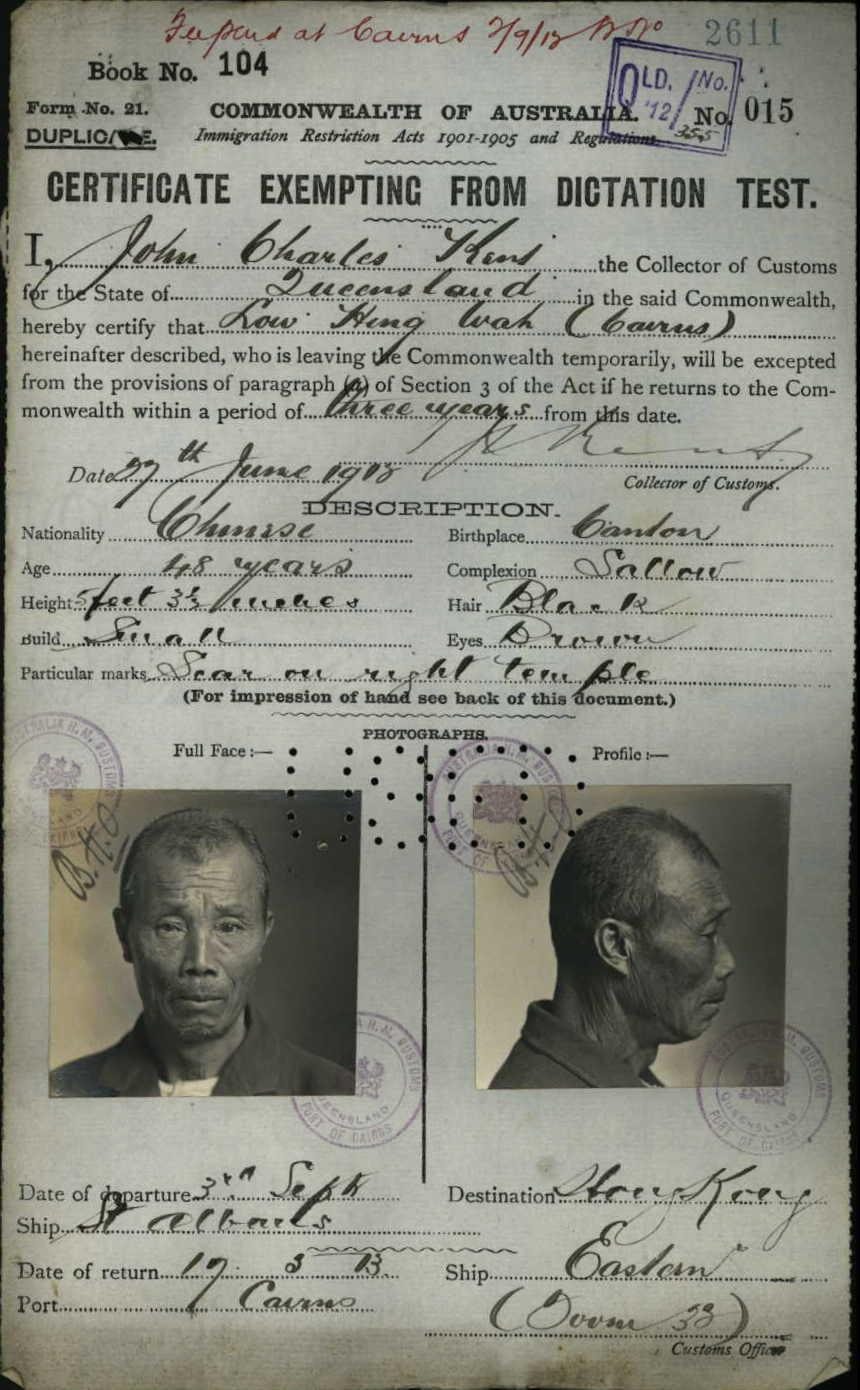 at Cairns 3/9/12
2611
Book No. 104
QLD. No.
'12/
Form No. 21.
COMMONWEALTH OF AUSTRALIA.
No. 015
DUPLICATE.
Immigration Restriction Acts 1901-1905 and Regulations.
CERTIFICATE EXEMPTING FROM DICTATION TEST.
I, John Charles Kent the Collector of Customs
for the State of Queensland in the said Commonwealth,
hereby certify that Low Hing Wah (Cairns)
hereinafter described, who is leaving the Commonwealth temporarily, will be excepted
from the provisions of paragraph (a) of Section 3 of the Act if he returns to the Com-
monwealth within a period of three years from this date.
J C Kent
Date 27th June 1912
Collector of Customs.
DESCRIPTION.
Nationality Chinese Birthplace Canton
Age 48 years Complexion Sallow
Height 5 feet inches Hair Black
Build Small Eyes Brown
Particular marks Scar on right temple
(For impression of hand see back of this document.)
PHOTOGRAPHS.
Full Face :— Profile :—
AUSTRALIA H.M. CUSTOMS
QUEENSLAND
PORT OF CAIRNS
Date of departure 3rd Sept Destination Hong Kong
Ship St Albans
Date of return 17 3 13. Ship Eastern
Port Cairns
Customs Officer